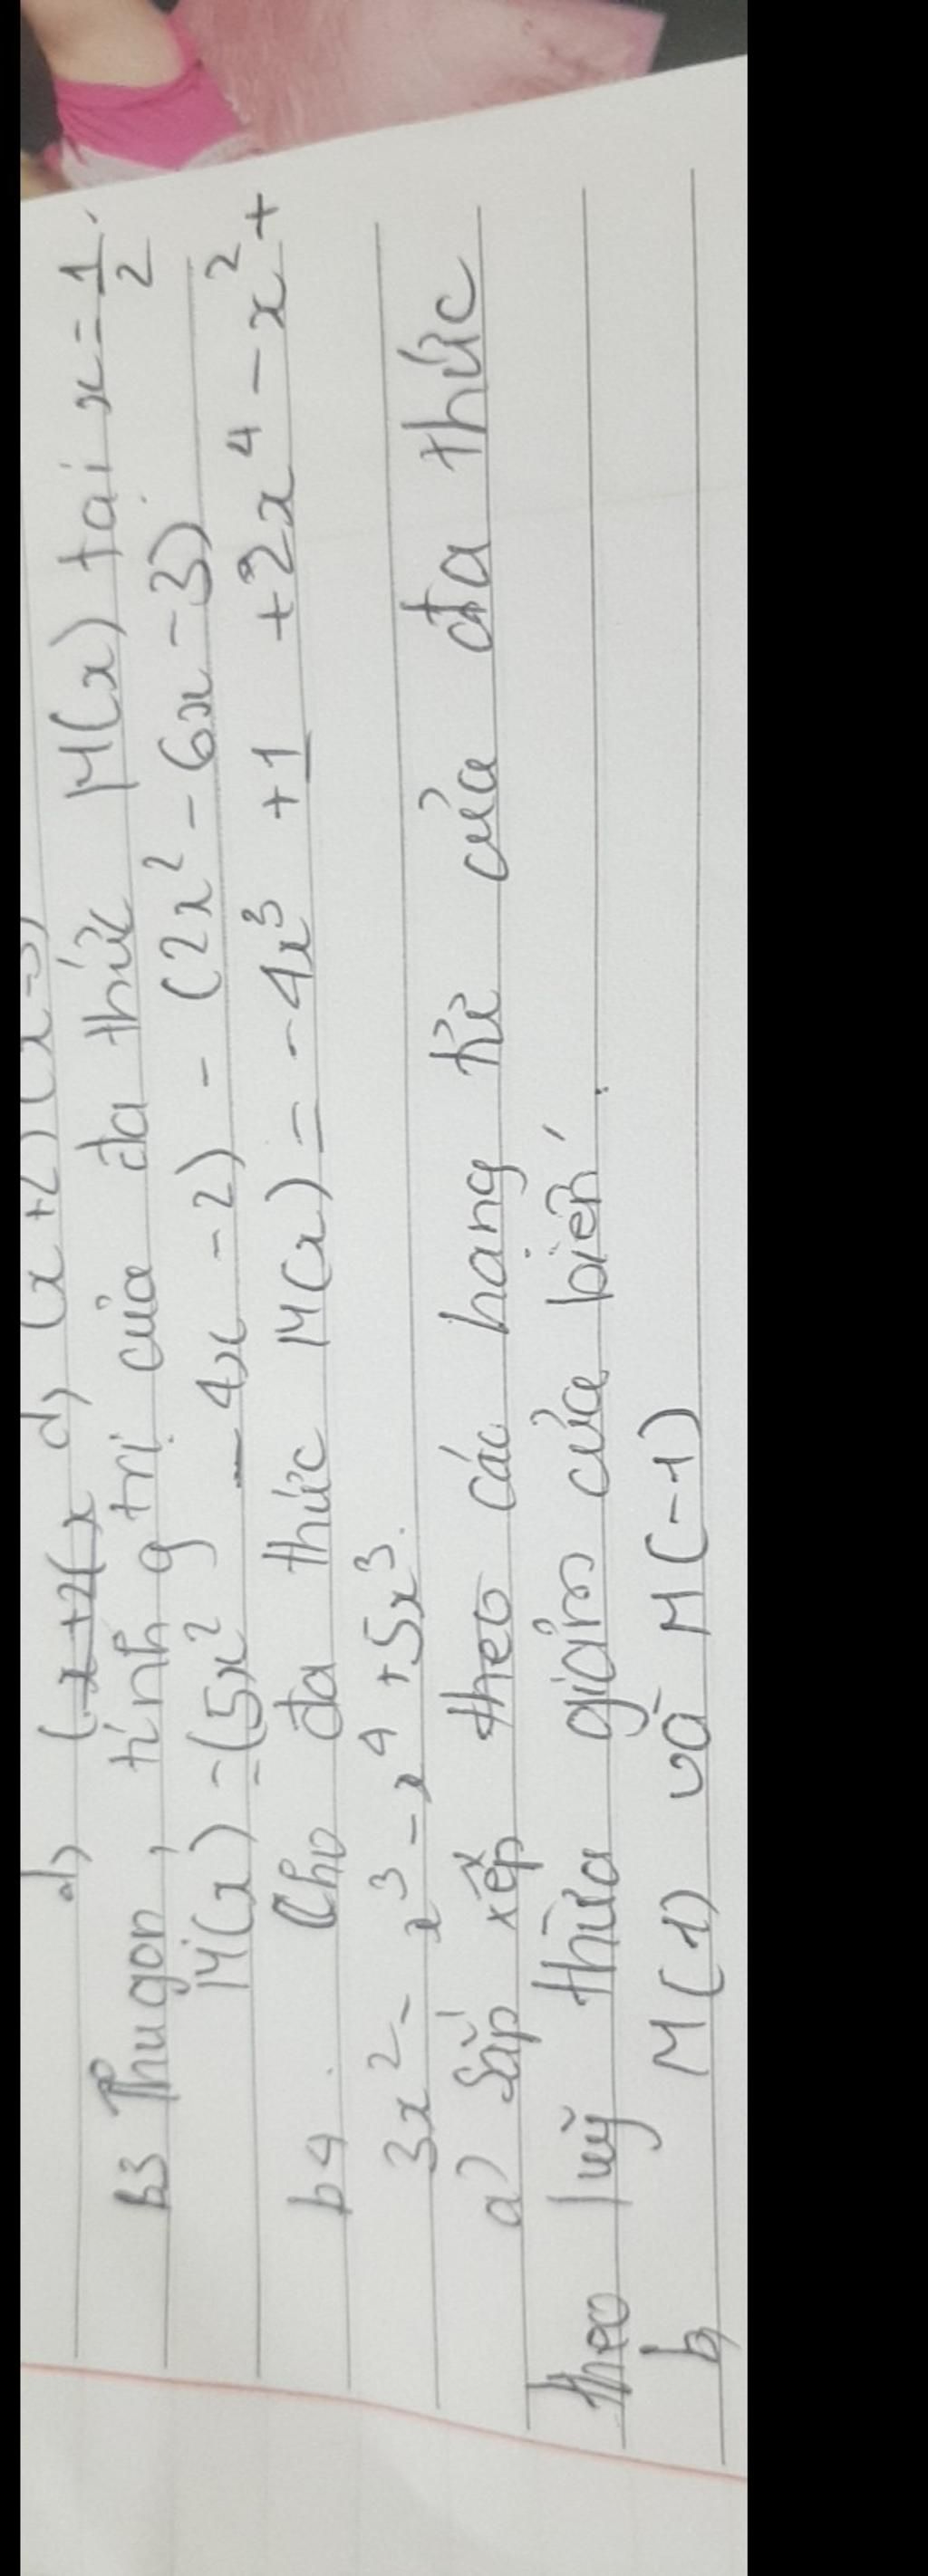 d) (x+2(x d) (x+2)(x-3)
B3 Thu gọn, tính g trị của đa thức M(x) tại x = 1/2.
M(x) = (5x² - 4x - 2) - (2x² - 6x - 3)
b4. Cho đa thức M(x) = -4x³ + 1 + 2x⁴ - x² +
3x² - x³ - x⁴ + 5x³.
a) Sắp xếp theo các hạng tử của đa thức
theo luỹ thừa giảm của biến.
b, M(1) và M(-1)